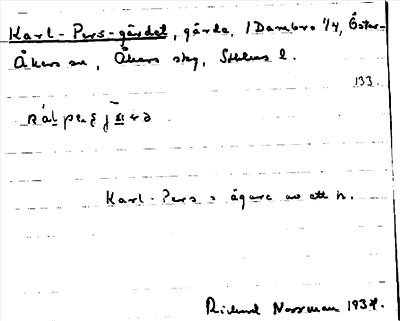 Karl-Pers-gärdet, gärde, 1 Dambro 1/4, Öster-
Åkers sn, Åkers skg, Sthlms l.
133.
Karl-Pers = ägare av ett h.
Rickard Norrman 1934.